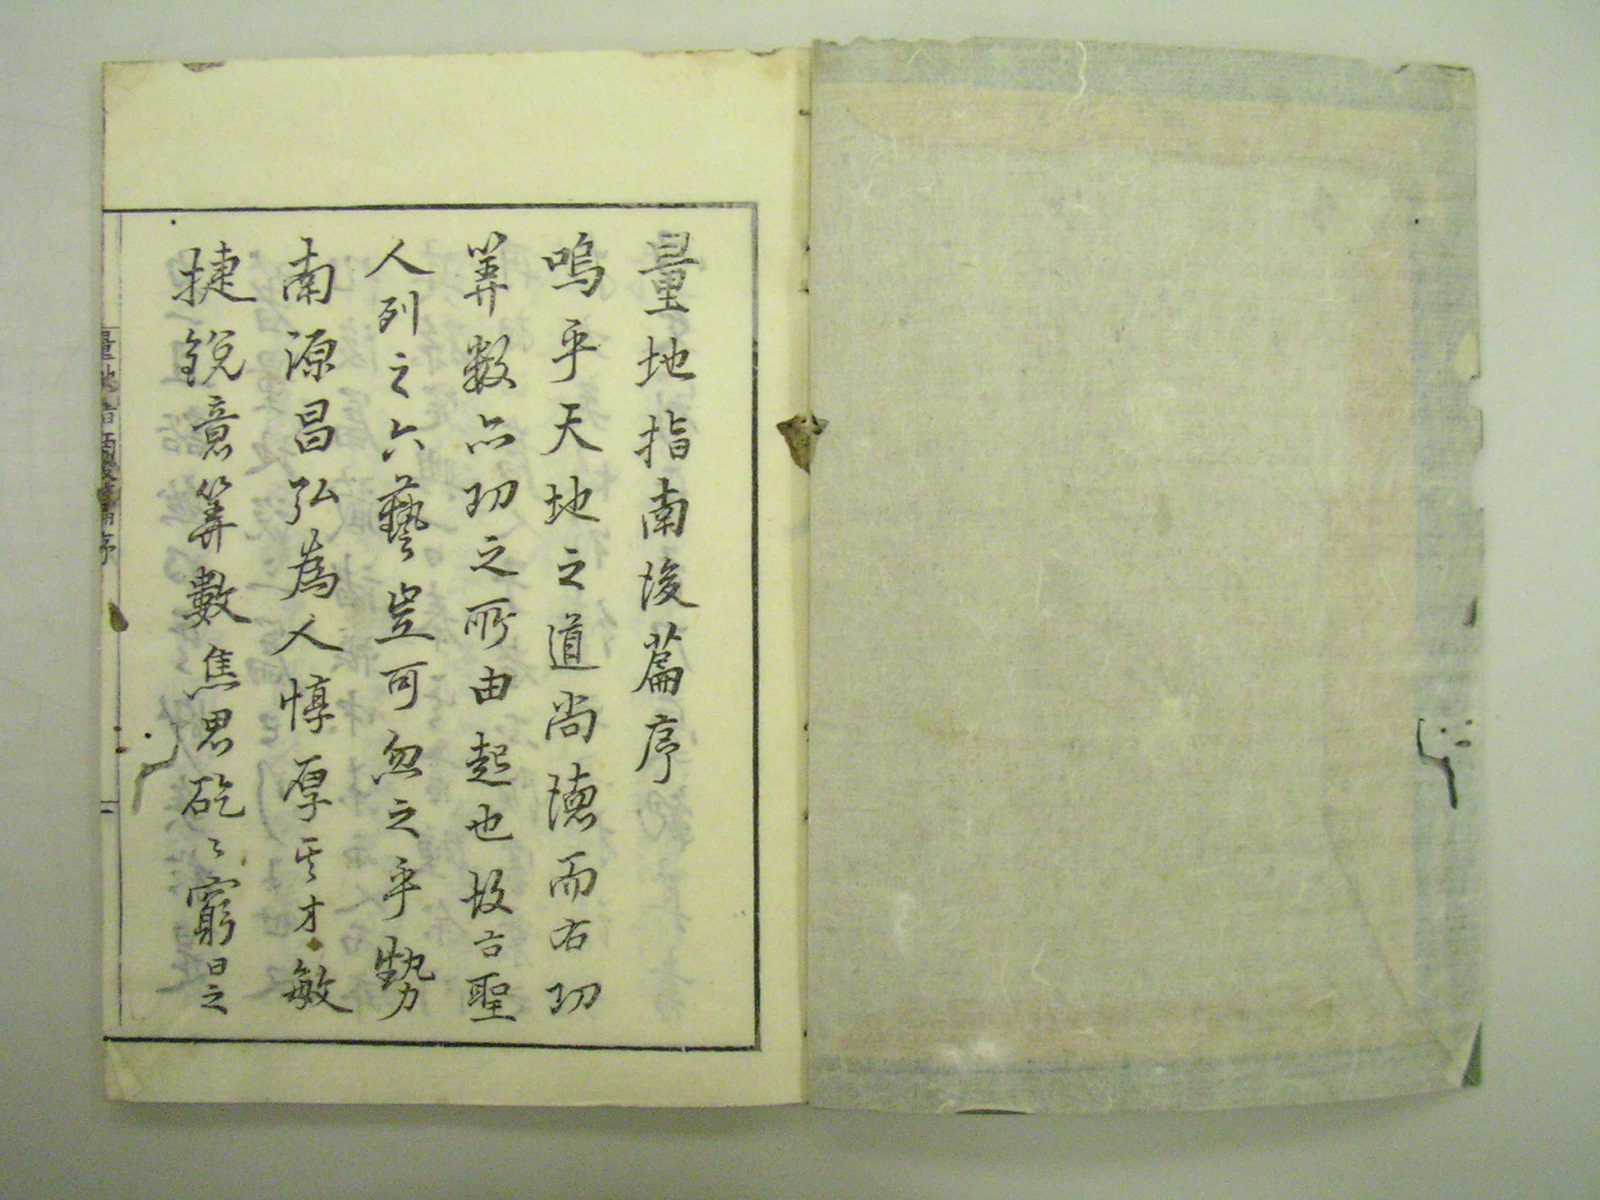 量地指南後篇序
嗚乎天地之道尚德而右功
筭数亦功之所由起也故古聖
人列之六藝豈可忽之乎勢
南源昌弘為人惇厚其才敏
捷銳意筭數焦思矻〻窮日之
量地指南後篇序